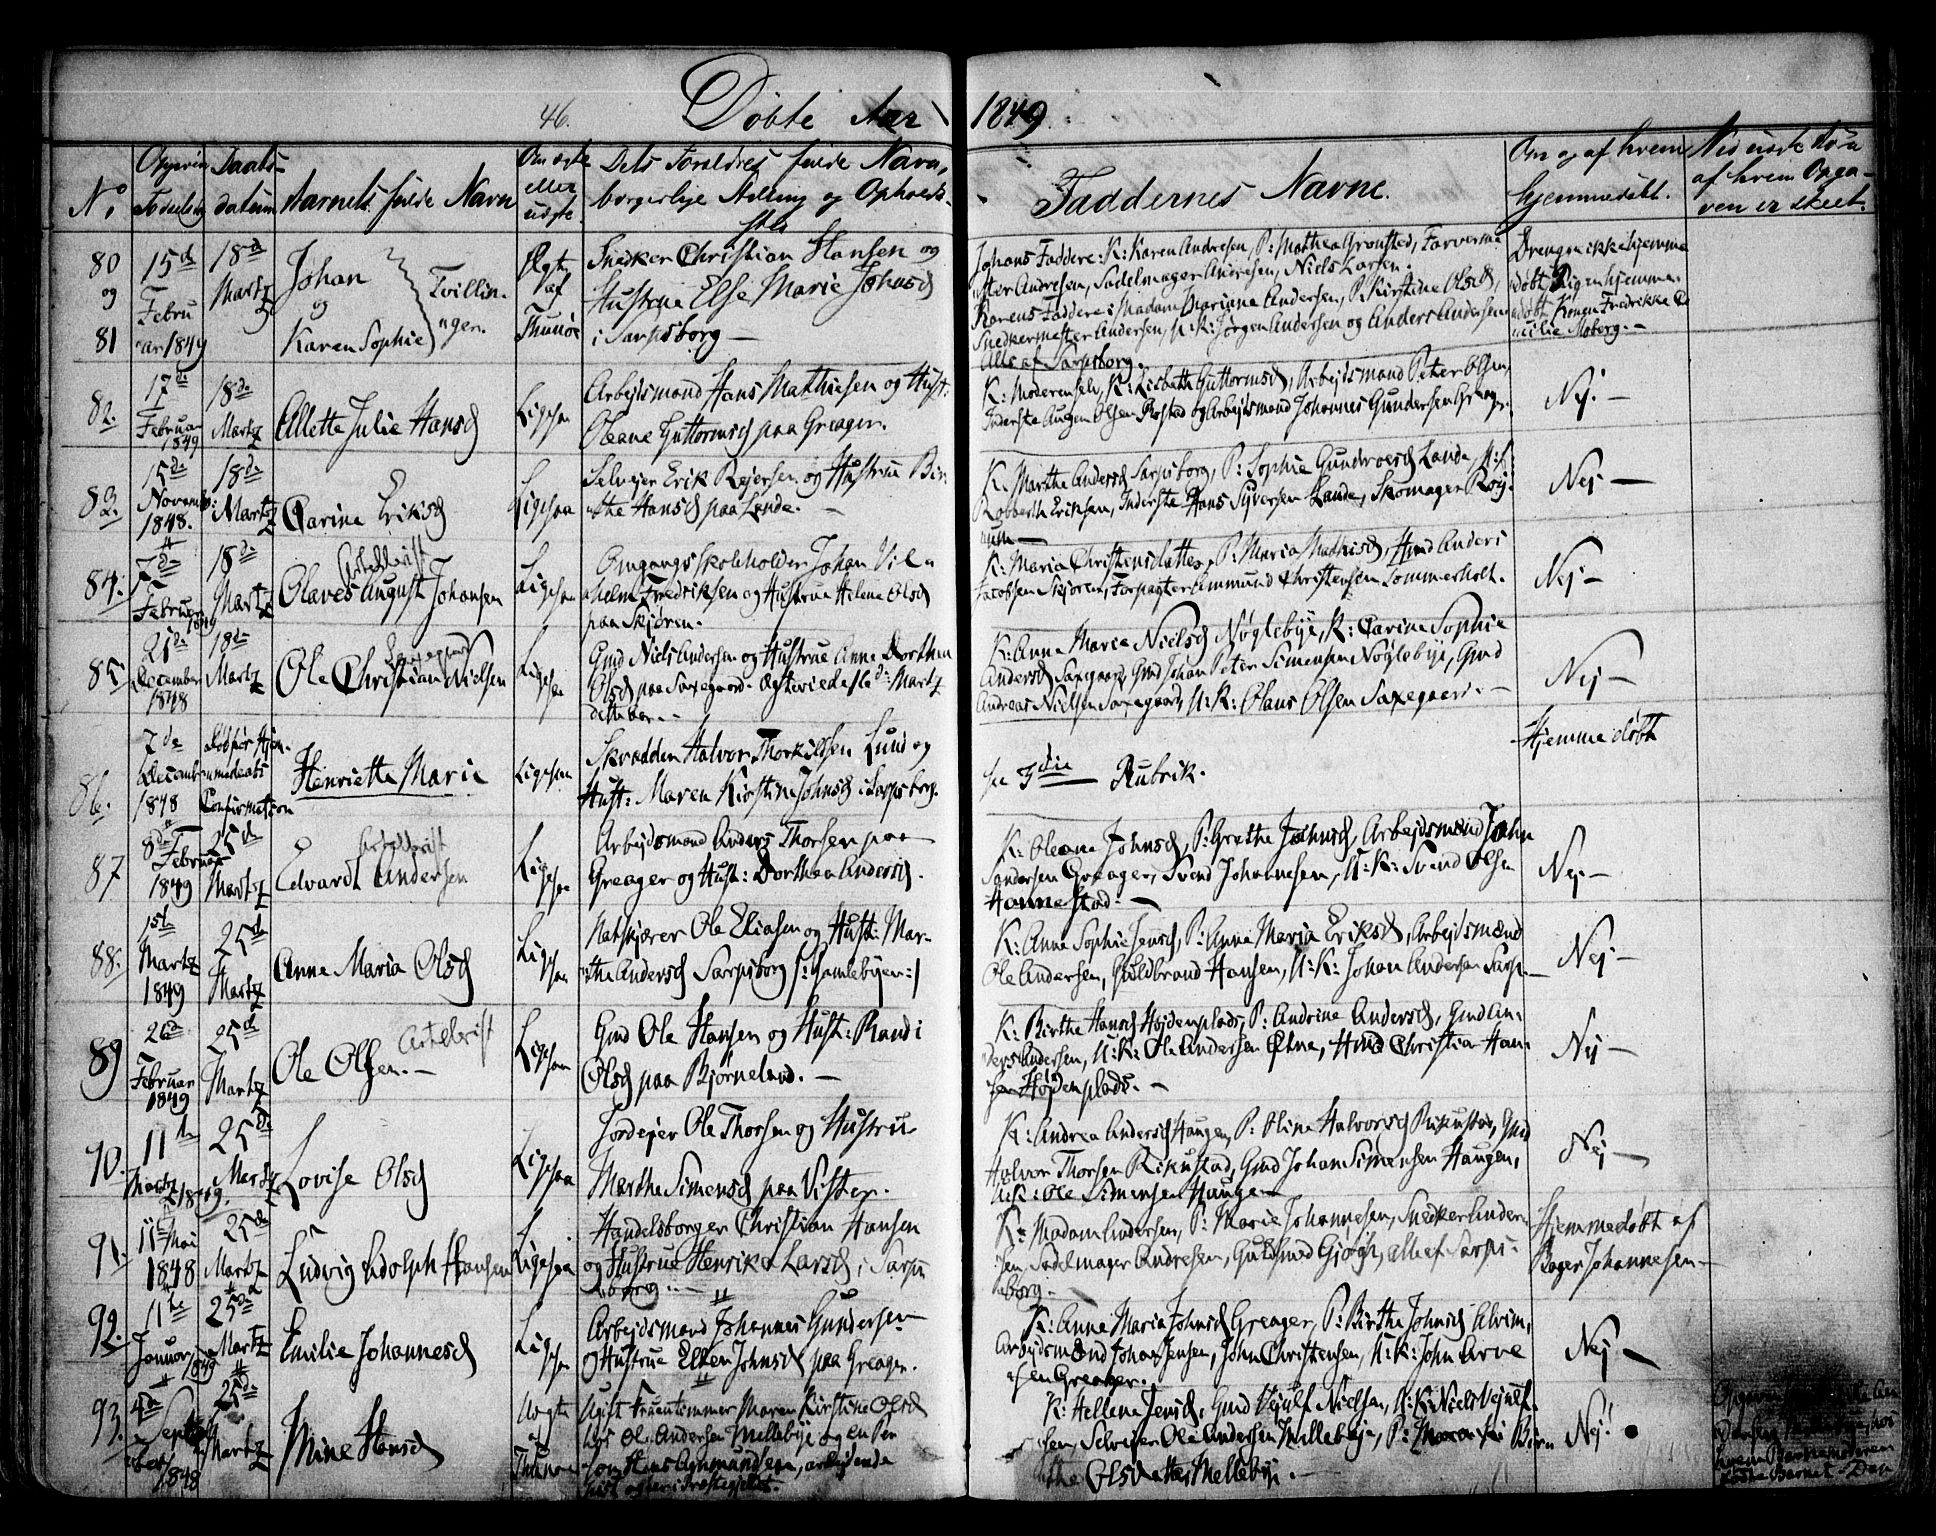 46.
Döbte Aar 1849.
No
Opgivne Födselsdag
Daabsdatum
Barnets fulde Navn
Om ægte eller uægte
Dets Forældres fulde Navn, borgerlige Stilling og Opholdssted
Faddernes Navne.
Om og af hvem hjemmedöbt.
Ved uægte Börn af hvem Opgaven er skeet.
80
og
81
15d
Februar 1849
18d
Martz
Johan
og
Karen Sophie
Tvillinger.
Ægte af Thunöe
Snedker Christian Hansen og
Hustrue Else Marie Johnsd
i Sarpsborg —
Johans Faddere: K: Karen Andresen, P: Mathea Grönsted, Farvermester Andresen, Sadelmager Andresen, Niels Larsen.
Karens Faddere: Madam Mariane Andersen, P. Kirstine Olsd,
Snedkermester Andersen, U.K: Jörgen Andersen og Anders Andersen
Alle af Sarpsborg.
Drengen ikke hjemmedöbt, Pigen hjemmedöbt Konen Fredrikke Cecilie Moberg. —
82.
17de
Februar
1849
18de
Martz
Ellette Julie Hansd
Ligesaa
Arbejdsmand Hans Mathiesen og Hust:
Oleane Guttormsd paa Greager.
K: Moderen selv, K: Lisbeth Guttormsd, Arbejdsmand Peter Olsen,
Inderste Augen Olsen Rostad og Arbejdsmand Johannes Gundersen Greager.
Nej. —
83.
15de
November
1848.
18de
Martz
Carine Eriksd
Ligesaa
Selvejer Erik Rejersen og Hustrue Birthe Hansd paa Lande. —
K. Marthe Andersd Sarpsborg, P: Sophie Gundroesd Lande, U:K:
Robberth Eriksen, Inderste Hans Syversen Lande, Skomager
Nej —
84.
7de
Februar
1849
18de
Martz
Olaves August Johansen
Ligesaa
Omgangsskoleholder Johan Vilhelm Fredriksen og Hustrue Helene Olsd
paa Skjören.
K: Maria Christensdatter, P: Maria Mathisd, Gmd Anders
Jacobsen Skjören, Forpagter Ammund Christensen Sommerholt.
Nej —
85
21de
December
1848
18de
Martz
Ole Christian Nielsen
Ligesaa
Gmd Niels Andersen og Hustrue Anne Dorthea
Olsd paa Saxegaard. Ægteviede Martz
dette aar. —
K: Anne Marie Nielsd Nöglebye, K: Carine Sophie
Andersd Saxegaard, Gmd Johan Peter Simensen Nöglebye, Gmd
Andreas Nielsen Saxegaard, U:K: Olaus Olsen Saxegaard. —
Nej —
86.
7de
December
1848
Hjemmedaabs
Confirmation
Henriette Marie
Ligesaa
Skrædder Halvor Thorkildsen Lund og
Hust: Maren Kirstine Johnsd i Sarpsborg.
see 3die Rubrik.
Hjemmedöbt
87
8de
Februar
1849
25de
Martz
Edvardt Andersen
Ligesaa
Arbejdsmand Anders Thorsen paa
Greager og Hust: Dorthea Andersd.
K: Oleane Johnsd, P: Grethe Johnsd, Arbejdsmænd John
Sandersen Greager, Svend Johannesen, U:K: Svend Olsen
Hannestad. —
Nej. —
88.
1ste
Martz
1849
25de
Martz
Anne Maria Olsd
Ligesaa
Natskjærer Ole Eliasen og Hust: Marthe Andersd Sarpsborg /: Gamlebyen :/
K: Anne Sophie Jensd, P: Anne Maria Eriksd, Arbejdsmænd
Ole Andersen, Guldbrand Hansen, U:K: Johan Andersen Sarp —
Nej —
89
26d
Februar
1849
25de
Martz
Ole Olsen. —
Ligesaa
Gmd Ole Hansen og Hust: Randi
Olsd paa Björneland. —
K: Birthe Hansd Höjdenplads, P: Andrine Andersd, Gmd Anders Andersen, U:K: Ole Andersen Etne, Gmd Christian Hansen Höjdenplads. —
Nej —
90.
11te
Martz
1849.
25de
Martz
Lovise Olsd
Ligesaa
Jordejer Ole Thorsen og Hustru
Marthe Simensd paa Vister.
K: Andrea Andersd Haugen, P: Oline Halvorsd Rikustad, Gmd
Halvor Thorsen Rikustad, Gmd Johan Simensen Haugen,
U:K: Ole Simensen Haugen
Nej —
91.
11te Mai
1848
25de
Martz
Ludvig Adolph Hansen
Ligesaa
Handelsborger Christian Hansen
og Hustrue Henrika Larsd i Sarpsborg. —
K: Madam Andersen, P: Marie Johannesen, Snedker Andersen, Sadelmager Andresen, Guldsmed Gjörgh, alle af Sarpsborg. —
Hjemmedöbt af
Bager Johannesen —
92.
11te
Januar
1849
25de
Martz
Emilie Johannesd
Ligesaa
Arbejdsmand Johannes Gundersen
og Hustrue Ellen Johnsd paa Greager.
K: Anne Maria Johnsd Greager, P: Birthe Johnsd Alvim,
Arbejdsmænd Johan Jensen, John Christensen, U:K: John Arvesen Greager.
Nej —
93.
4de
September
1848
25de
Martz
Mine Hansd
Uægte af
Ugift Fruentimmer Maren Kirstine Olsd
hos Ole Andersen Mellebye og en
Hans Ammundsen, arbejdende
K: Hellene Jensd, Gmd Vejulf Nielsen, U:K: Niels Vejulfsen, Selvejer Ole Andersen Mellebye, P:
Olsdatter Mellebye. —
Nej!